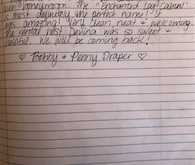 our honeymoon. The "Enchanted Log Cabin"
is most definitely the perfect name! It
was amazing! Very clean, neat & welcoming.
The rental host Devina was so sweet &
helpful. We will be coming back!
♡ Bobby & Penny Draper ♡